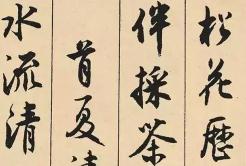 松花歷
伴採茶
首夏清
水流清